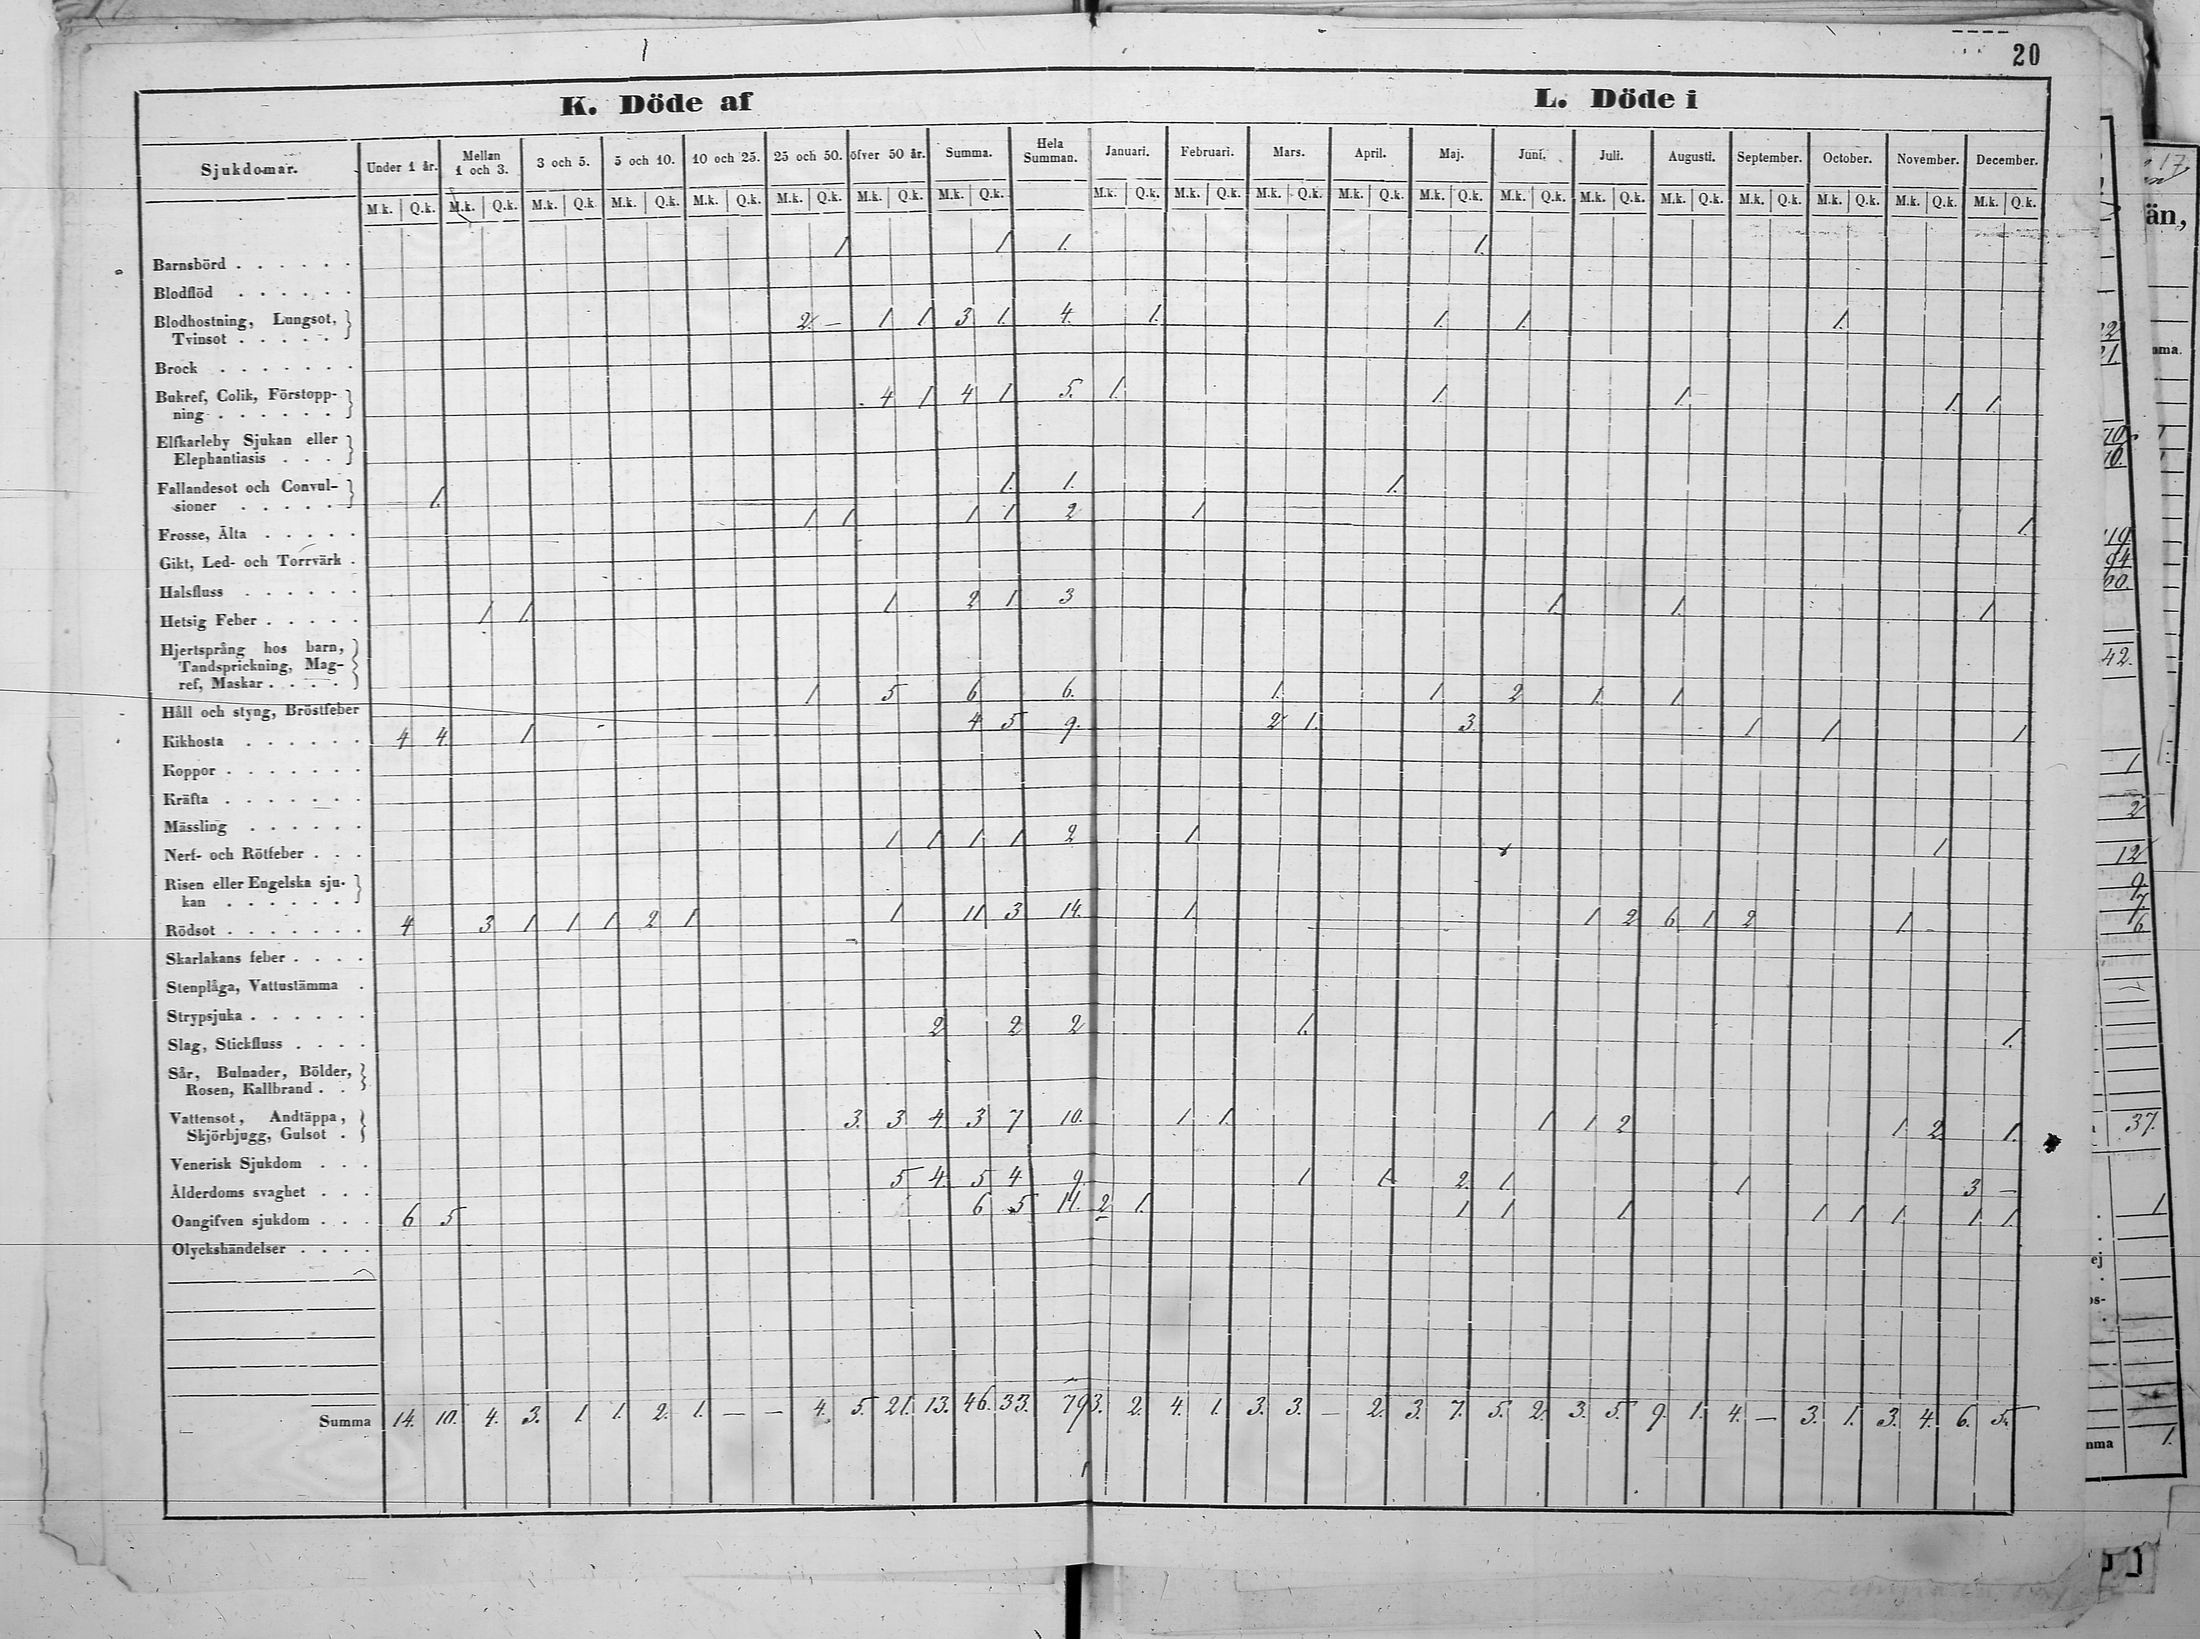 20
K. Döde af
L. Döde i
Sjukdomar. Under 1 år. Mellan 1 och 3. 3 och 5. 5 och 10. 10 och 25. 25 och 50. öfver 50 år. Summa. Hela Summan. Januari. Februari. Mars. April. Maj. Juni. Juli. Augusti. September. October. November. December.
M.k. Q.k. M.k. Q.k. M.k. Q.k. M.k. Q.k. M.k. Q.k. M.k. Q.k. M.k. Q.k. M.k. Q.k. M.k. Q.k. M.k. Q.k. M.k. Q.k. M.k. Q.k. M.k. Q.k. M.k. Q.k. M.k. Q.k. M.k. Q.k. M.k. Q.k. M.k. Q.k. M.k. Q.k. M.k. Q.k.
Barnsbörd 1 1 1. 1.
Blodflöd
Blodhostning, Lungsot,
Tvinsot 2. — 1 1 3 1. 4. 1. 1. 1. 1.
Brock
Bukref, Colik, Förstopp-
ning 4 1 4 1 5. 1. 1. 1. 1. 1.
Elfkarleby Sjukan eller
Elephantiasis
Fallandesot och Convul-
sioner 1. 1. 1. 1.
Frosse, Älta 1 1 1 1 2 1 1.
Gikt, Led- och Torrvärk
Halsfluss
Hetsig Feber 1 1. 1 2 1 3 1. 1. 1
Hjertsprång hos barn,
Tandsprickning, Mag-
ref, Maskar
Håll och styng, Bröstfeber 1 5 6 6. 1. 1 2 1. 1
Kikhosta 4 4. 1 4 5 9. 2 1. 3. 1 1 1
Koppor
Kräfta
Mässling
Nerf- och Rötfeber 1 1 1 1 2 1. 1
Risen eller Engelska sju-
kan
Rödsot 4 3 1 1 1 2 1 1 11 3 14. 1. 1 2 6 1 2 1
Skarlakans feber
Stenplåga, Vattustämma
Strypsjuka
Slag, Stickfluss 2 2 2 1. 1.
Sår, Bulnader, Bölder,
Rosen, Kallbrand
Vattensot, Andtäppa,
Skjörbjugg, Gulsot 3. 3 4 3 7 10. 1 1. 1 1 2 1 2 1.
Venerisk Sjukdom
Ålderdoms svaghet 5 4. 5 4 9 1 1 2. 1 1 3 —
Oangifven sjukdom 6 5 6 5 11. 2 1. 1 1 1 1 1 1 1 1
Olyckshändelser
Summa 14. 10. 4. 3. 1. 1. 2. 1. — — 4. 5. 21. 13. 46. 33. 79 3. 2. 4. 1. 3. 3. — 2. 3. 7. 5. 2. 3. 5. 9. 1. 4. — 3. 1. 3. 4. 6. 5.
17
än,
42.
1
2
12
9.
7.
6
37.
1
ej
1.